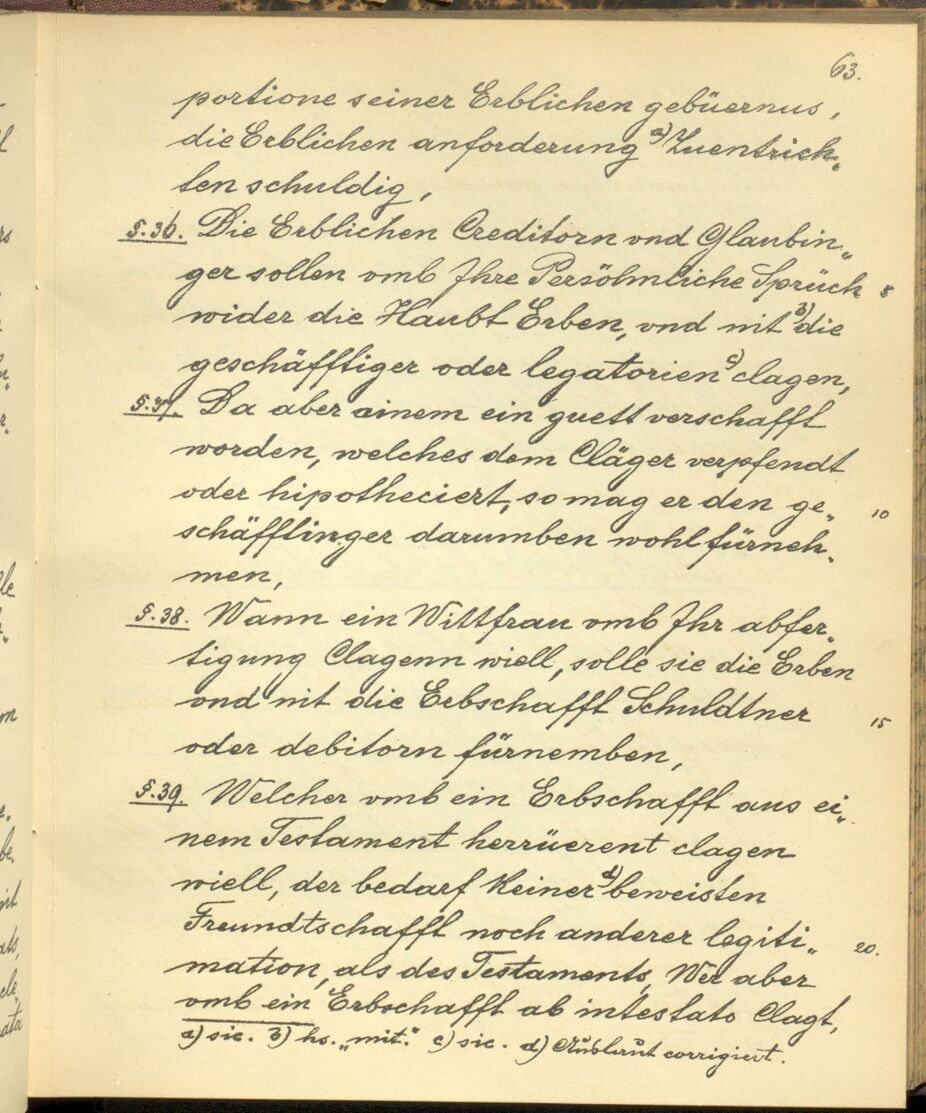 63.
portione seiner Erblichen gebüernus,
die Erblichen anforderung a) Zuentrich„
ten schuldig,
§. 36. Die Erblichen Creditorn vnd Glaubin„
ger sollen vmb Ihre Persöhnliche Sprüch 5
wider die Haubt Erben, vnd nit b) die
geschäfftiger oder legatorien c) clagen,
§. 37. Da aber ainem ein guett verschafft
worden, welches dem Cläger verpfendt
oder hipotheciert, so mag er den ge„ 10
schäfftinger darumben wohl fürneh„
men,
§. 38. Wann ein Wittfrau vmb Ihr abfer„
tigung Clagenn wiell, solle sie die Erben
vnd nit die Erbschafft Schuldtner 15
oder debitorn fürnemben,
§. 39. Welcher vmb ein Erbschafft aus ei„
nem Testament herrüerent clagen
wiell, der bedarf keiner d) beweisten
Freundtschafft noch anderer legiti„ 20.
mation, als des Testaments, Wer aber
vmb ein Erbschafft ab intestato Clagt,
a) sic. b) hs. „mit.“ c) sic. d) corrigiert.